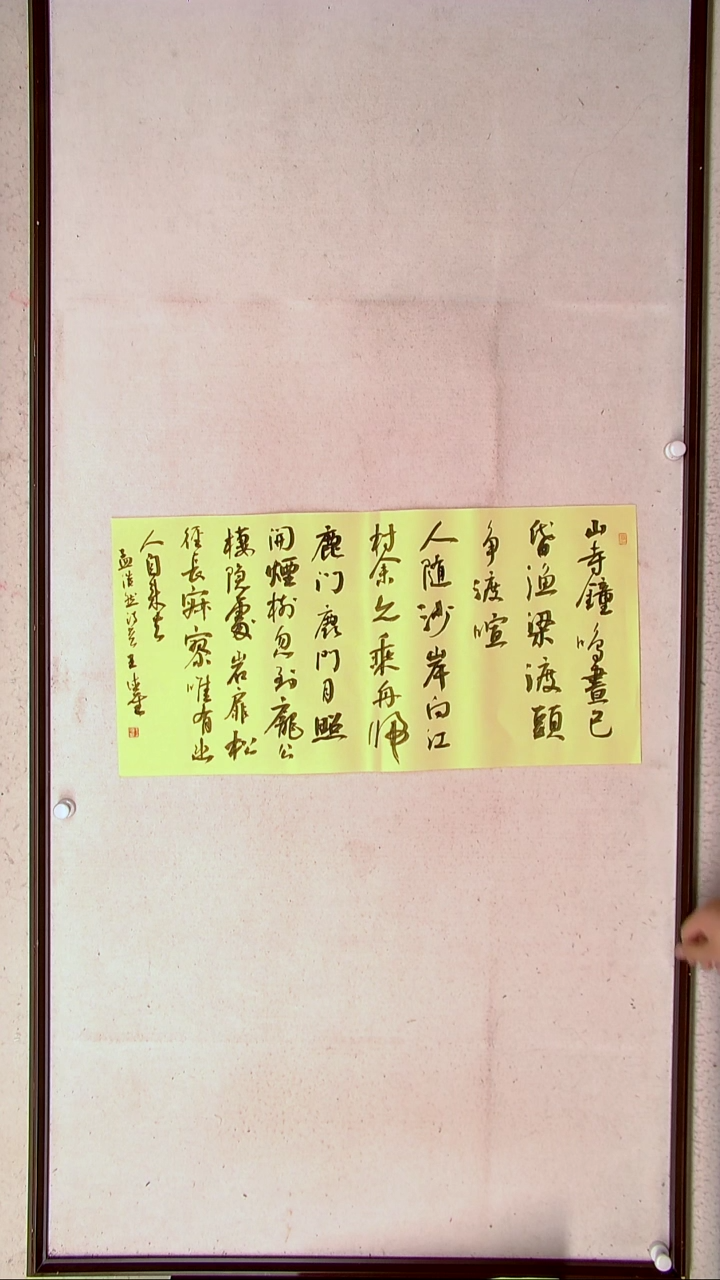 山寺鐘鳴晝已
昏漁梁渡頭
争渡喧
人随沙岸向江
村余亦乘舟归
鹿门鹿门月照
開煙樹忽到龐公
棲隐處岩扉松
徑長寂寥唯有幽
人自来去
孟浩然诗